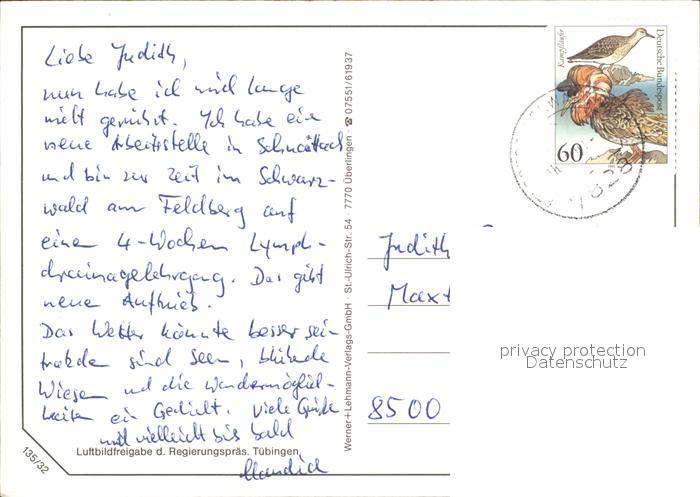 Liebe Judith,
nun habe ich mich lange
nicht gerührt. Ich habe eine
neue Arbeitsstelle in
und bin zur Zeit im Schwarz-
wald am Feldberg auf
einem 4-Wochen Lymph-
drainagelehrgang. Das gibt
neue Auftrieb.
Das Wetter könnte besser sein
trotzdem sind Seen, blühende
Wiesen und die Wandermöglich-
keiten ein Gedicht. Viele Grüße
und vielleicht bis bald
Luftbildfreigabe d. Regierungspräs. Tübingen
135/32
Werner+Lehmann-Verlags-GmbH · St.-Ulrich-Str. 54 · 7770 Überlingen ☎ 07551/61937
Kampfläufer
Deutsche Bundespost
60
7828
Judith
8500
privacy protection
Datenschutz